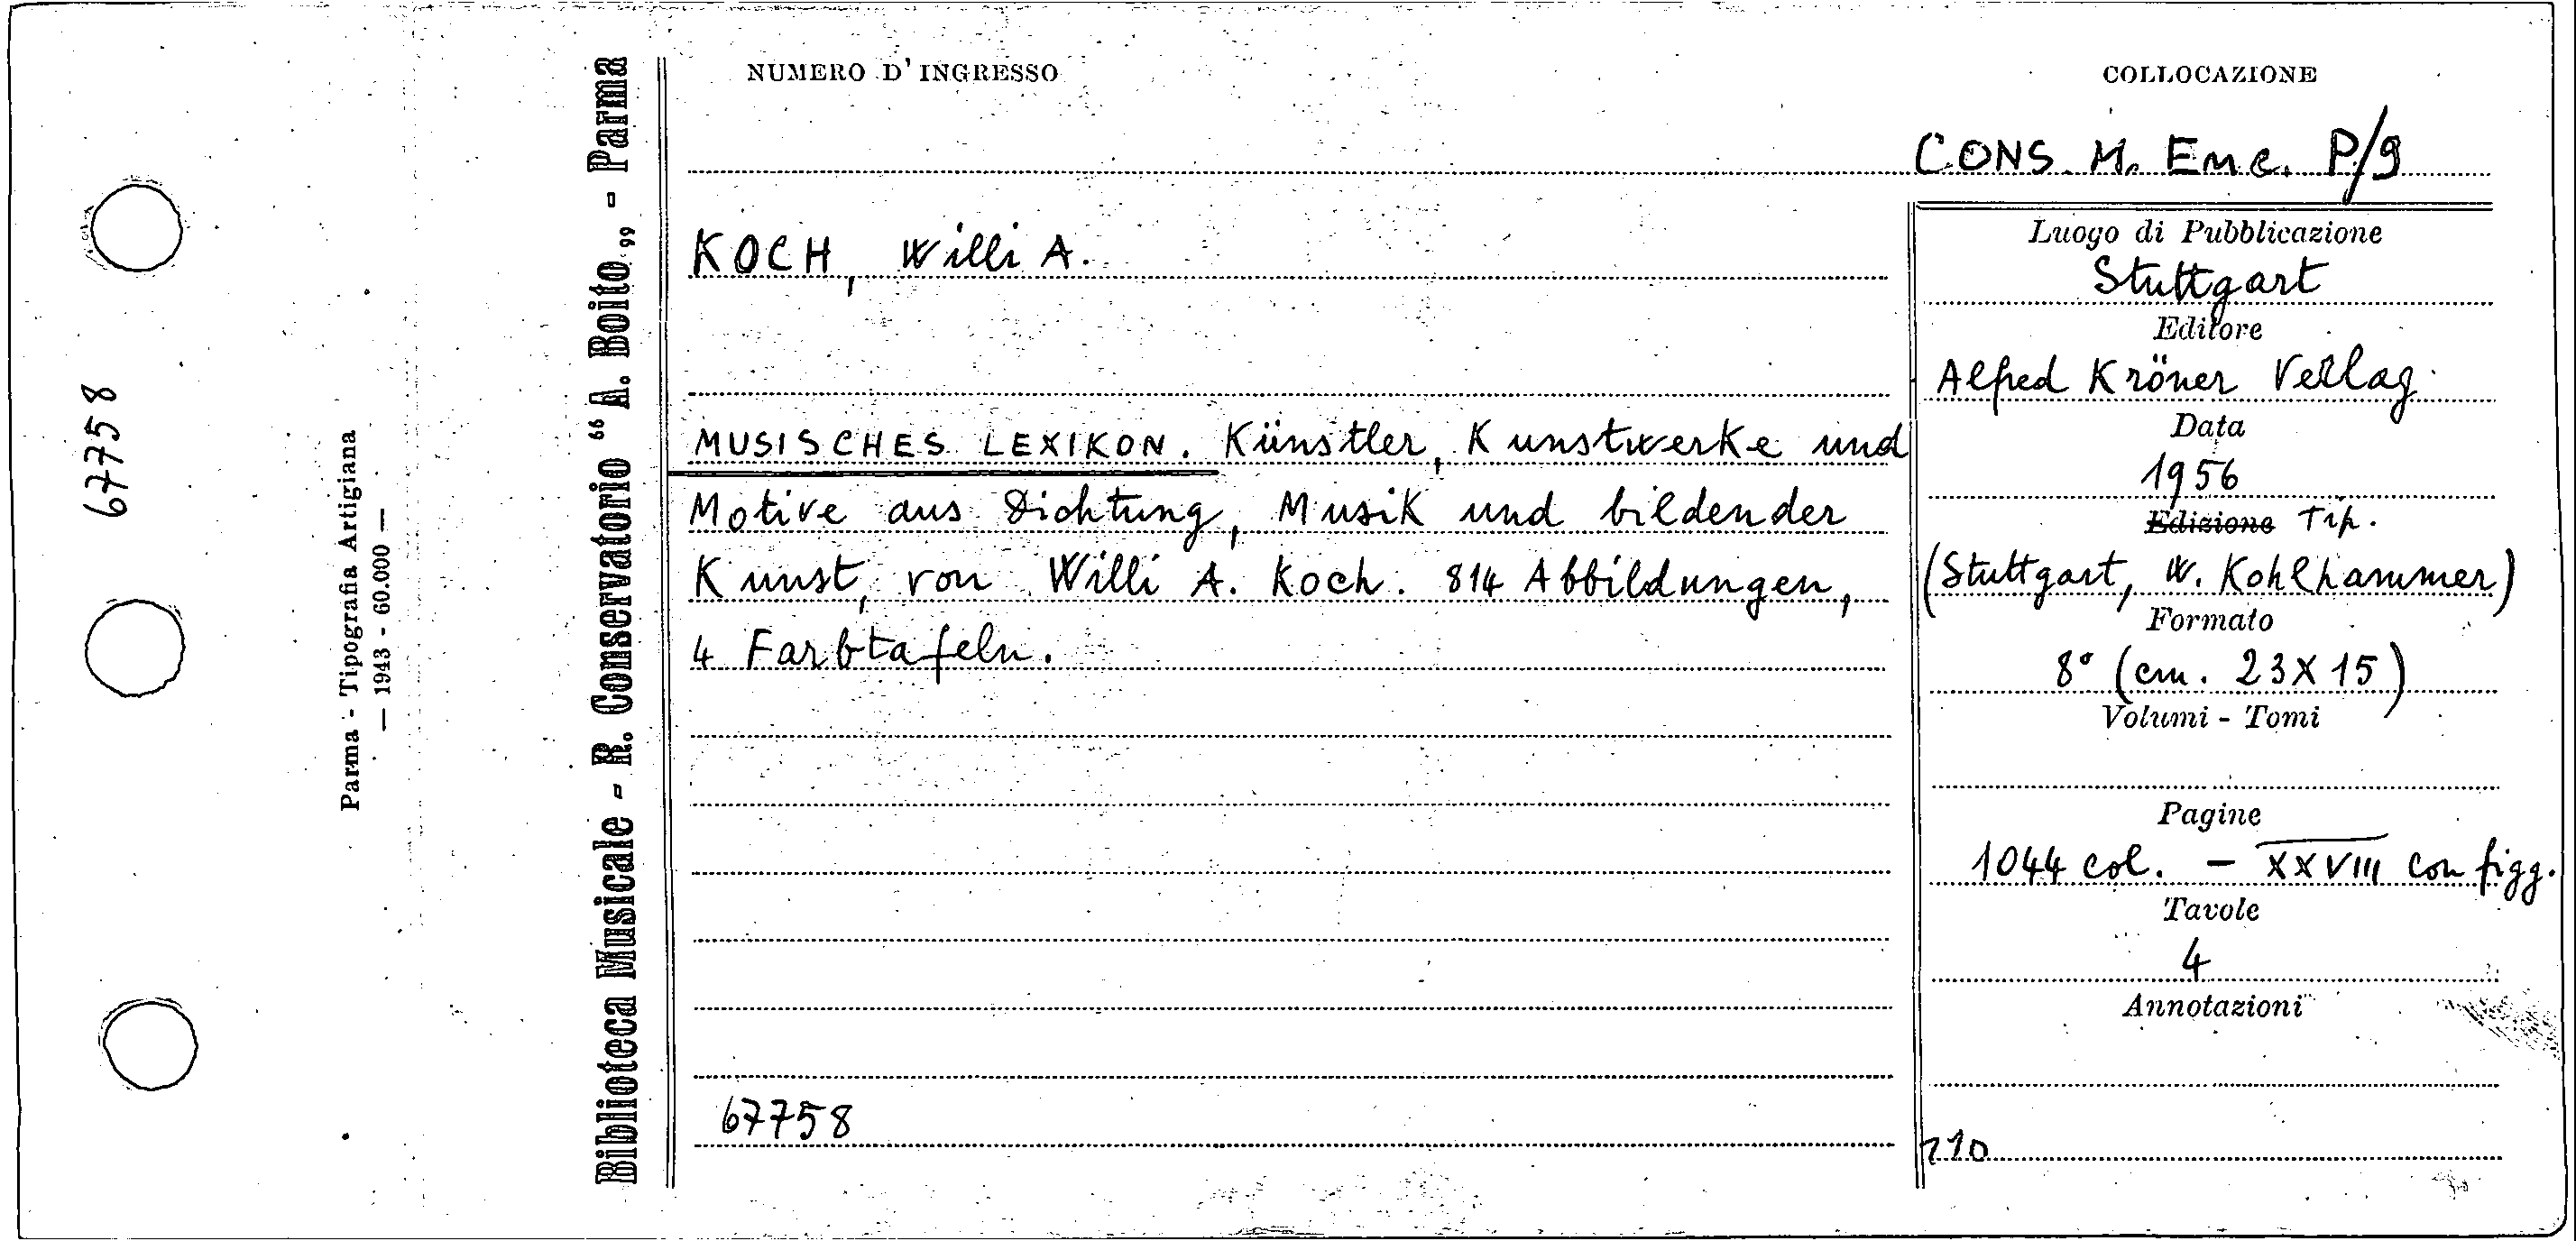 67758
Parma - Tipografia Artigiana
— 1943 - 60.000 —
Biblioteca Musicale - R. Conservatorio “A. Boito„ - Parma
NUMERO D'INGRESSO
COLLOCAZIONE
CONS. M. Enc. P/9
KOCH, Willi A.
MUSISCHES LEXIKON. Künstler, Kunstwerke und
Motive aus Dichtung, Musik und bildender
Kunst, von Willi A. Koch. 814 Abbildungen,
4 Farbtafeln.
67758
Luogo di Pubblicazione
Stuttgart
Editore
Alfred Kröner Verlag
Data
1956
Edizione Tip.
(Stuttgart, W. Kohlhammer)
Formato
8° (cm. 23X15)
Volumi - Tomi
Pagine
1044 col. - XXVIII con figg.
Tavole
4
Annotazioni